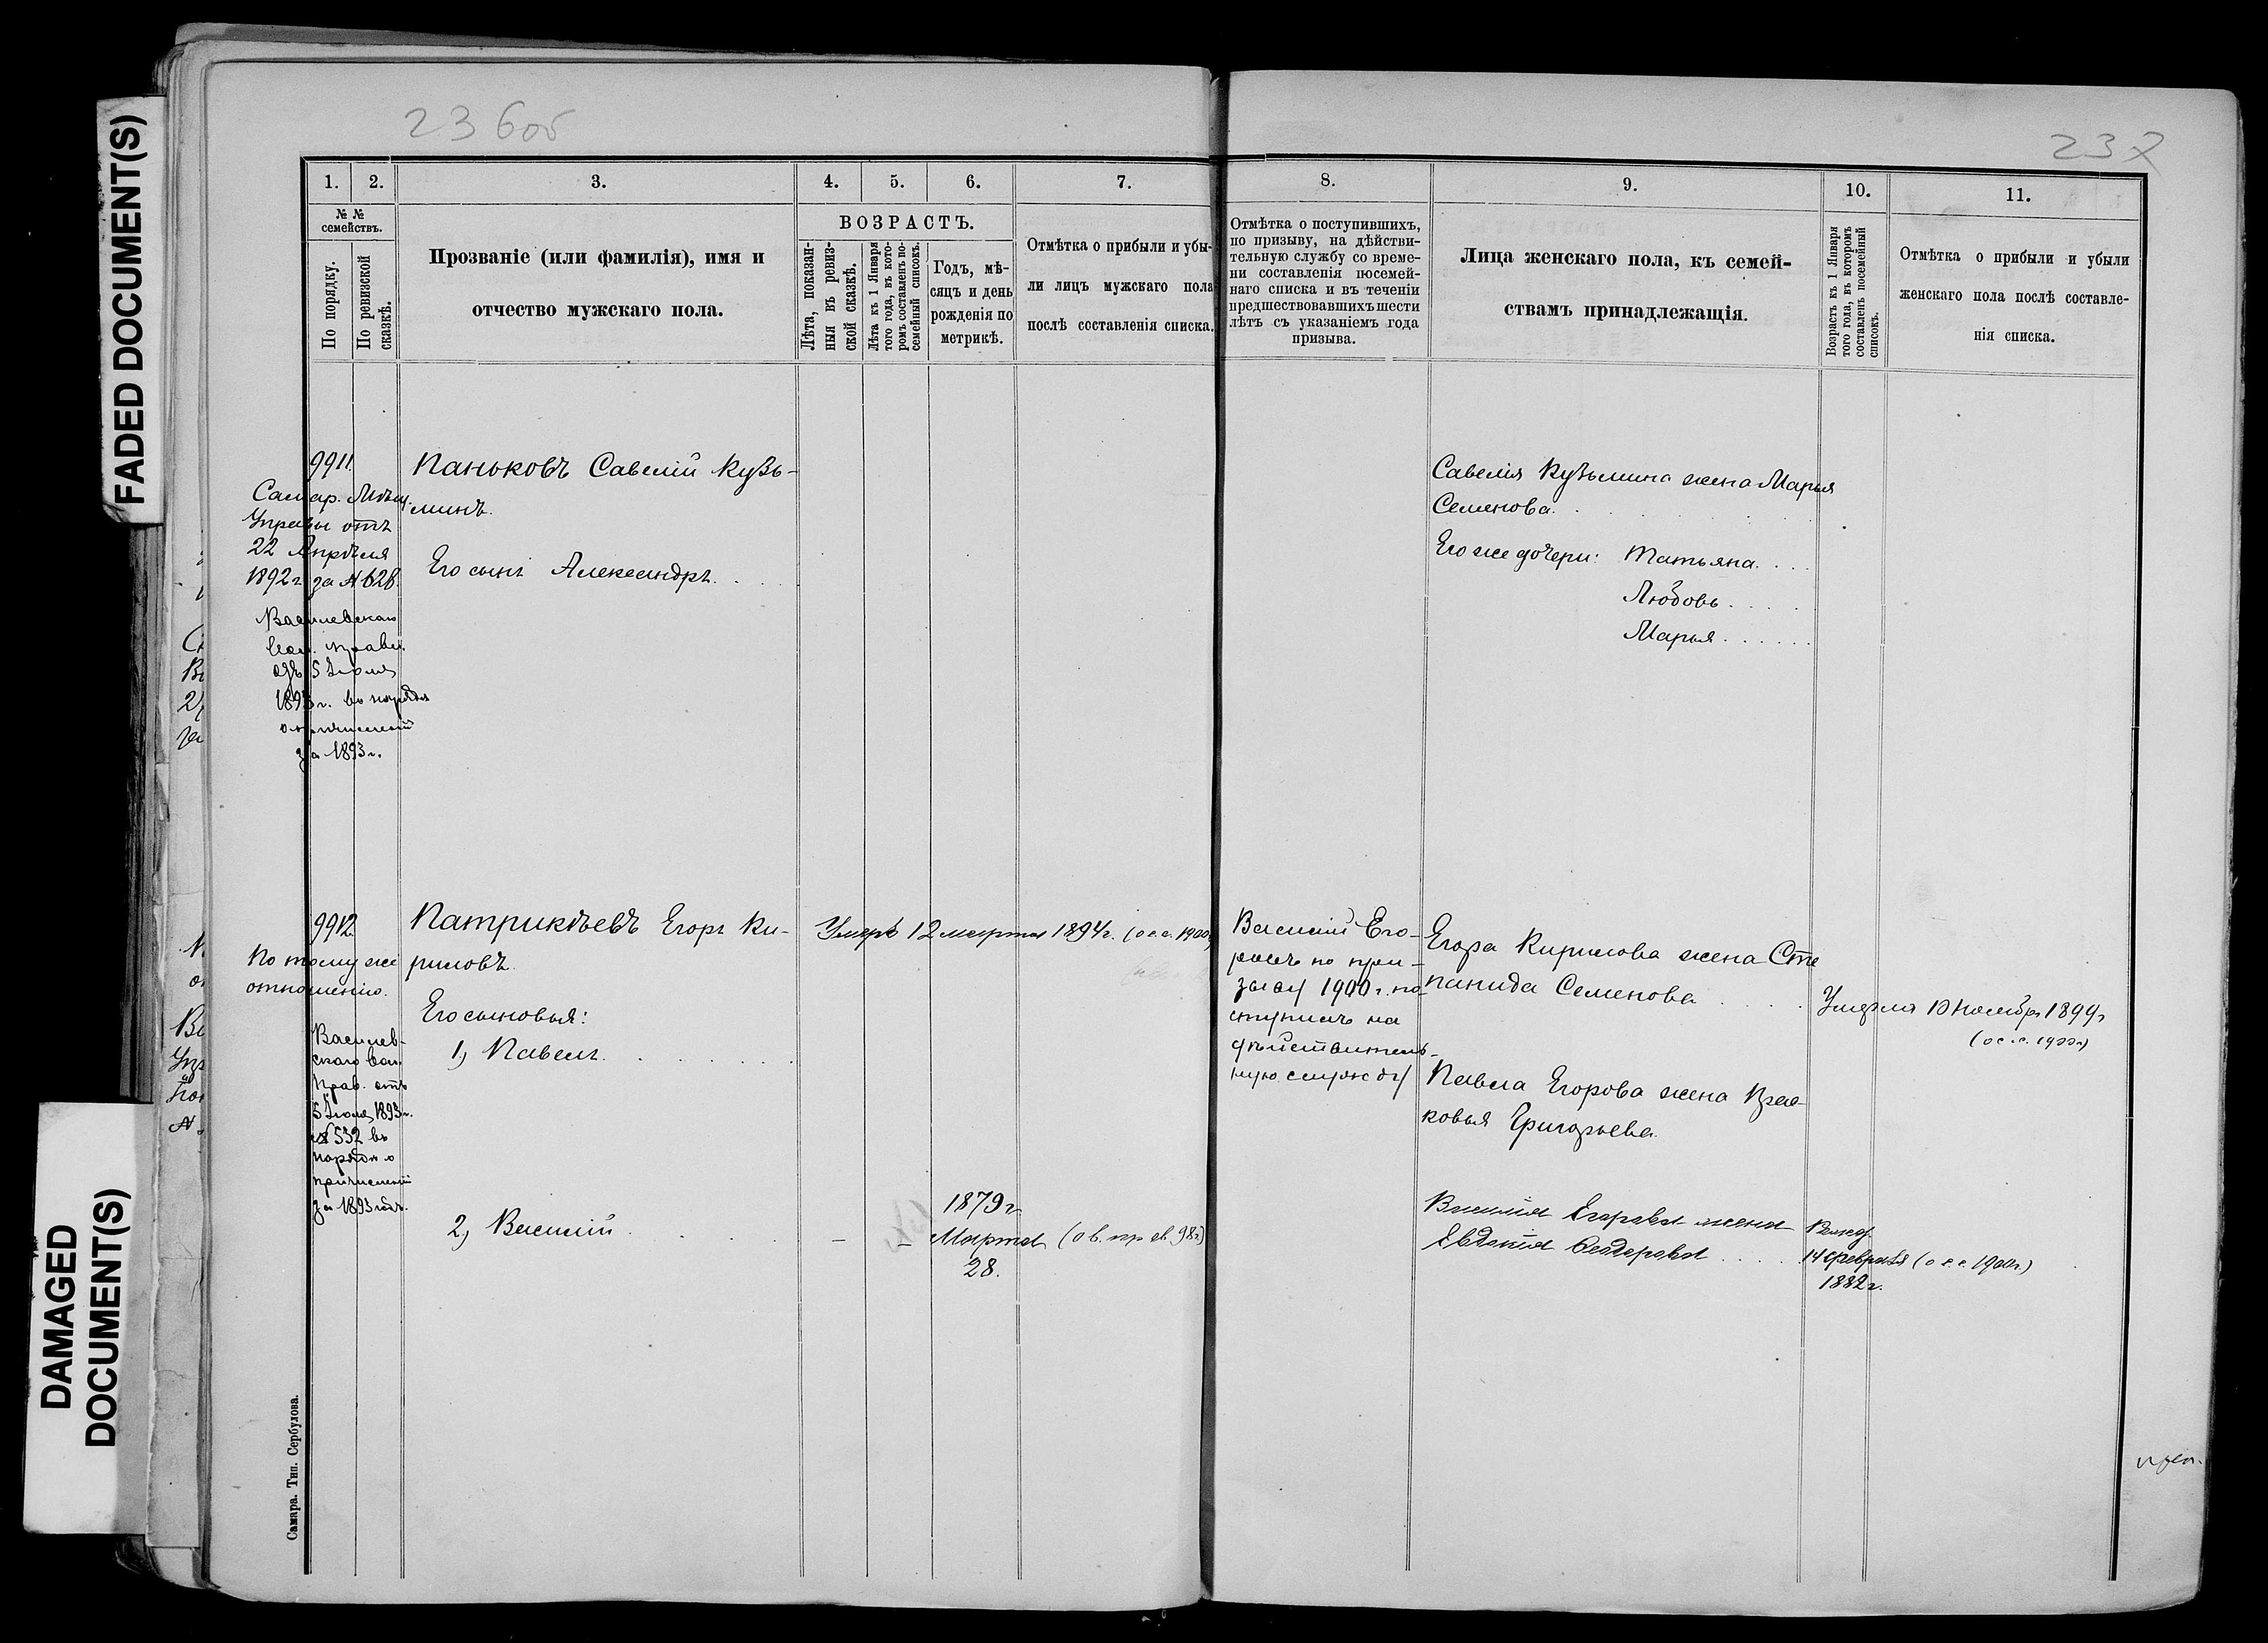 FADED DOCUMENT(S)
DAMAGED
DOCUMENT(S)
23 боб
237
1.
2.
3.
4.
5.
6.
7.
8.
9.
10.
11.
№ №
семействъ.
По порядку.
По ревизской
сказкѣ.
Прозваніе (или фамилія), имя и
отчество мужскаго пола.
ВОЗРАСТЪ.
Лѣта, показан-
ныя въ ревиз-
ской сказкѣ.
Лѣта къ 1 Января
того года, въ кото-
ромъ составленъ по-
семейный списокъ.
Годъ, мѣ-
сяцъ и день
рожденія по
метрикѣ.
Отмѣтка о прибыли и убы-
ли лицъ мужскаго пола
послѣ составленія списка.
Отмѣтка о поступившихъ,
по призыву, на дѣйстви-
тельную службу со време-
ни составленія посемей-
наго списка и въ теченіи
предшествовавшихъ шести
лѣтъ съ указаніемъ года
призыва.
Лица женскаго пола, къ семей-
ствамъ принадлежащія.
Возрастъ къ 1 Января
того года, въ которомъ
составленъ посемейный
списокъ.
Отмѣтка о прибыли и убыли
женскаго пола послѣ составле-
нія списка.
9911.
Самар. Мѣщ.
Управы отъ
22 Апрѣля
1892 г. за № 628.
Василевскаго
Вол. Правл.
отъ 5 Іюля
1893 г. въ
за 1893 г.
Паньковъ Савелій Кузь-
минъ.
Его сынъ Александръ.
Савелія Кузьмина жена Марья
Семенова.
Его же дочери: Татьяна.
Любовь
Марья
9912.
По тому же
отношенію.
Василев-
скаго Вол.
Прав. отъ
5 Іюля 1893 г.
№ 532 въ
о
причисленіи
за 1893 годъ.
Патрикѣевъ Егоръ Ки-
риловъ.
Умеръ 12 марта 1894 г. (о с.с. 1900)
Его сыновья:
1, Павелъ.
2, Василій
1879 г.
Марта
28.
(о в. пр св. 98 г.)
Василій Его-
ровъ по при-
зыву 1900 г. по-
ступилъ на
дѣйствитель-
ную службу
Егора Кирилова жена Сте
панида Семенова
Умерла 10 Ноября 1899 г
(о с.с. 1900 г)
Павла Егорова жена Прас-
ковья Григорьева.
Василія Егорова жена
Евдокія Феодорова
14 февраля (о с.с. 1900 г.)
1882 г.
Самара. Тип. Сербулова.